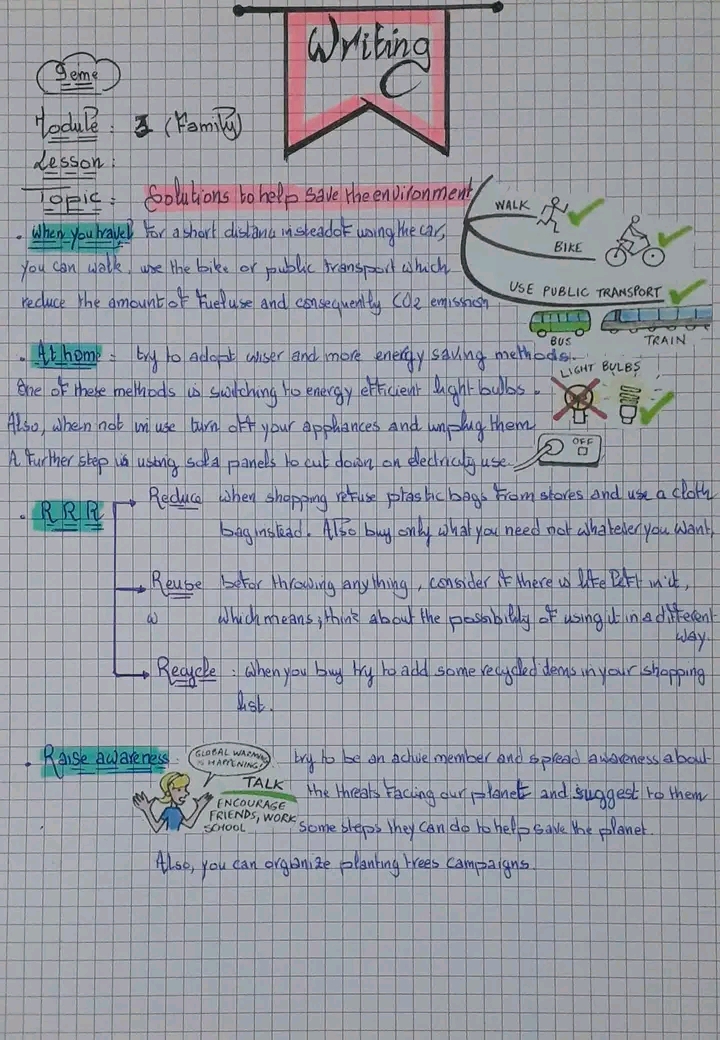 Writing
C
9eme
Module : 3 (Family)
Lesson :
Topic : Solutions to help save the environment
WALK
BIKE
USE PUBLIC TRANSPORT
BUS
TRAIN
. When you travel for a short distanc insteadof using the car,
you can walk, use the bike or public transport which
reduce the amount of fuel use and consequently CO2 emission
. At home : try to adopt wiser and more energy saving methods.
One of these methods is switching to energy efficient light bulbs.
LIGHT BULBS
Also, when not in use turn off your appliances and unplug them
OFF
A further step is using sola panels to cut down on electricity use
. RRR
Reduce when shopping refuse plastic bags from stores and use a cloth
bag instead. Also buy only what you need not whatever you want,
Reuse befor throwing anything, consider if there is life left in it,
which means; think about the possibility of using it in a different
way.
Recycle : When you buy try to add some recycled items in your shopping
list.
. Raise awareness :
GLOBAL WARMING
IS HAPPENING!
TALK
ENCOURAGE
FRIENDS, WORK,
SCHOOL
try to be an active member and spread awareness about
the threats facing our planet and suggest to them
some steps they can do to help save the planet.
Also, you can organize planting trees campaigns.